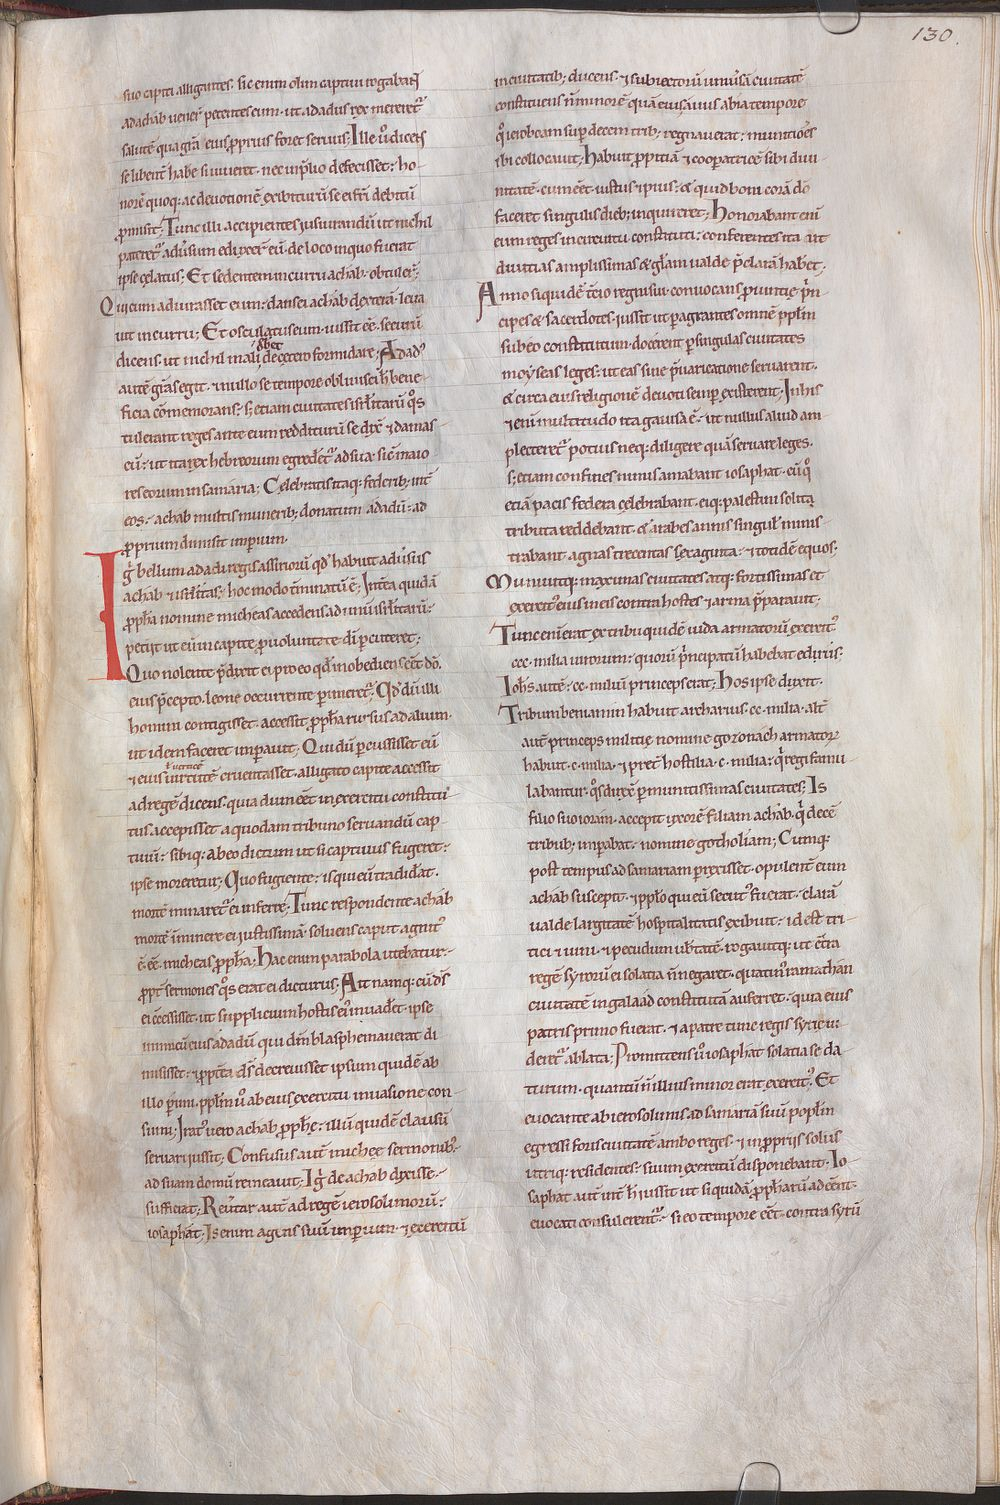 130.
suo capiti alligantes. sic enim olim captivi rogabant
ad achab vener̄ petentes eum. ut adadus rex mereret᷑
salutē qua gr̄a eius ꝓprius foret servus; Ille u̇ dicens
se libent̄ habe si viveret. nec in p̄lio defecisset: ho-
norē quoq; ac devotionē exibiturū se eı frı̄ debitū
ꝓmisit; Tunc illi accipientes iusiurandū ut nichil
pateret᷑ adv̄sum eduxer̄ eū. de loco in quo fuerat
ipse celatus; Et sedentem in curru achab. obtuler̄;
Qui cum adiurasset eum: dansei achab dexterā. leva
vit in curru; Et osculatus eum. iussit eē. securū
dicens. ut nichil mali debet decetero formidare; Adad᷒
autē grās egit. & nullo se tempore oblivisci h̄ bene-
ficia cōmemorans. s; etiam civitates isrl̄itarū q̊s
tulerant reges ante eum redditurū se dixt̄ & damas-
cū: ut ita rex hebreorum egrederet᷑ ad sua. sic̄ maio
res eorum in samaria; Celebratis itaq; federib; int̄
eos: achab multis munerib; donatum adadū: ad
ꝓprium dimisit imperium.
Ig̊ bellum adadi regis assirioru qd̄ habuit adv̄sus
achab & isrl̄itas; hoc modo t̄minatū ē; Int̄ea quidā
ꝓph̄a nomine micheas accedens ad unū isrl̄itarū:
petiit ut eū in capite ꝓ voluntate dı̄ ꝑcuteret;
Quo nolente p̄dixit ei ꝓ eo qd̄ inobediens eēt dō.
eius p̄cepto. leone occurrente perimeret᷑; Qd̄ dū illi
homini contigisset. accessit ꝓph̄a rursus ad alium.
ut idem faceret imperavit; Qui dū ꝑcussisset eū
& eius virtutē cruentasset. alligato capite accessit
ad regē dicens. quia dum eēt in exercitu constitu-
tus. accepisset a quodam tribuno servandū cap-
tivū: sibiq; ab eo dictum ut si captivus fugeret:
ipse moreretur; Quo fugiente: is qui eū tradidit.
mortē minaret᷑ ei inferre; Tunc respondente achab
mortē īminere ei iustissimā. solvens caput agnit᷒
ē. eē. micheas ꝓph̄a; Hac enim parabola utebatur:
ꝓpt̄ sermones q̊s erat ei dicturus; Ait namq; cū ds̄
ei c̄cessisset. ut supplicium hostis ei᷒ invaderet. ipse
inimicū eius adadū qui dn̄m blasphemaverat di-
misisset: & ꝓpt̄ea ds̄ decrevisset ipsum quidē ab
illo ꝑimi. pplm̄ u̇ ab eius exercitu invasione con-
sumi; Irat᷒ vero achab ꝓph̄e: illū quidē clausū
servari iussit; Confusus aut̄ michee sermonib᷒.
ad suam domū remeavit; Ig̊ de achab dixisse.
sufficiat; Revertar aut̄ ad regē ierosolimorū:
iosaphat; Is enim agens suū imperium & exercitū
in civitatib; ducens. & subiectorū univ̄sā civitatē
constituens n̄ minorē quā eius avus abia tempore
q̊ ieroboam sup decem trib; regnaverat: munitiōes
sibi collocavit; Habuit ꝓpitiā & cooperatricē sibi divi-
nitatē. cum eēt iustus & pius: & quid boni corā dō
faceret singulis dieb; inquireret; Honorabant eni
eum reges in circuitu constituti: conferentes ita ut
divitias amplissimas & gl̄am valde p̄clarā haberet;
Anno siquidē t̄cio regni sui. convocans ꝓvintie p̄n
cipes & sacerdotes. iussit ut ꝑagrantes omnē pplm̄
sub eo constitutum. docerent ꝑ singulas civitates
moyseas leges: ut eas sine p̄varicatione servarent.
& circa eius religionē devoti semper existerent; In his
& enī multitudo ita gavisa ē: ut nullus aliud am-
plecteret᷑ potius neq; diligere quā servare leges.
s; etiam confines nimis amabant iosaphat. cū q̊
etiā pacis federa celebrabant. eiq; palestini solita
tributa reddebant. & arabes annis singul̄ minis-
trabant. agnas trecentas sexaginta: & totidē equos.
Munivitq; maximas civitates atq; fortissimas et
exercit᷒ eius in eis contra hostes & arma p̄paravit;
Tunc eni erat ex tribu quidē iuda armatorū exercit᷒
ccc. milia virorum: quorū p̄ncipatū habebat edinus.
Ioh̄s autē: cc. miliū princeps erat; Hos ipse duxit.
Tribum beniamin habuit archarius. cc. milia. alt̄
aut̄ princeps militie nomine gozonach armatorꝝ
habuit. c. milia. & pret̄ hos milia. c. milia: q̊ regi famu
labantur. q̊s duxē ꝑ munitissimas civitates; Is
filio suo ioram. accepit uxorē filiam achab. q̊ decē
tribub; imperabat. nomine gotholiam; Cumq;
post tempus ad samariam perrexisset. opulent̄ eum
achab suscepit. & pplo qui eū secut᷒ fuerat. clarā
valde largitatē hospitalitatis exibuit: id est tri-
tici & vini. & pecudum ub̄tatē. rogavitq; ut c̄tra
regē syrorū ei solatia n̄ negaret. quatin᷒ ramathan
civitatē in galaad constitutā auferret: quia eius
patris primo fuerat. & a patre tunc regis syrie vi-
deret᷑ ablata; Promittens u̇ iosaphat solatia se da
turum. quantū n̄ illius minor erat exercit᷒. Et
evocante ab ierosolimis ad samariā suū poplm̄
egressi foris civitatē ambo reges. & in ꝓpriis soliis
utriq; residentes. suum exercitū disponebant; Io-
saphat aut̄ int̄ h̄ iussit ut si quidā ꝓph̄arū adeēnt.
evocati consulerent᷑. si eo tempore eēt. contra syrū